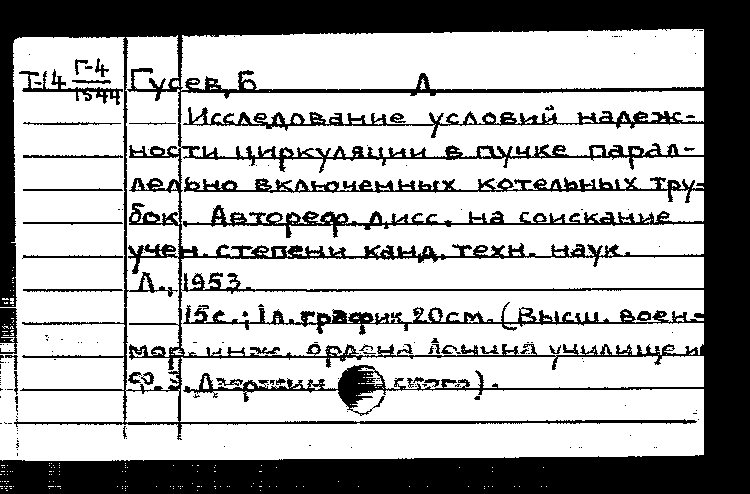 Т-14 Г-4
1544 Гусев, Б Л
Исследование условий надеж-
ности циркуляции в пучке парал-
лельно включенных котельных тру-
бок. Автореф. дисс. на соискание
учен. степени канд. техн. наук.
Л., 1953.
15с.; 1л. график, 20см. (Высш. воен.-
мор. инж. ордена Ленина училище и
Ф.Э. Дзержинского).